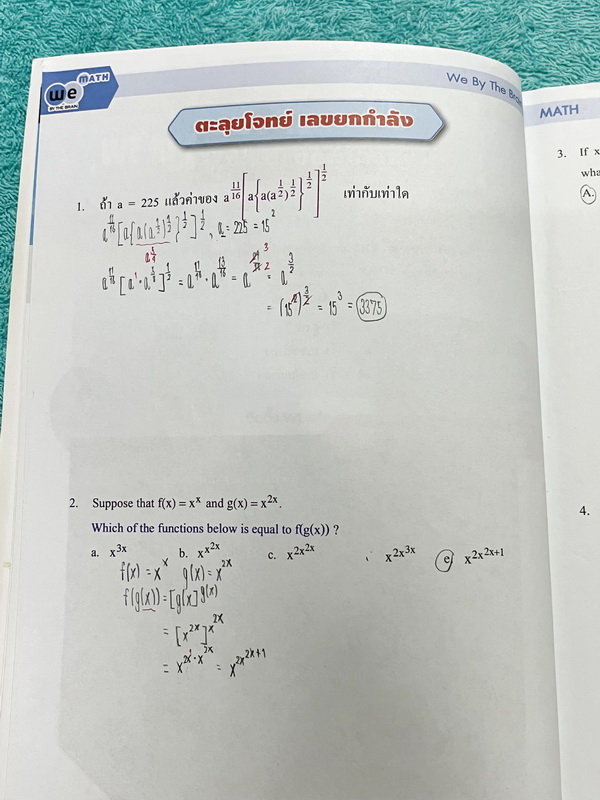 we MATH
BY THE BRAIN
We By The Brain
ตะลุยโจทย์ เลขยกกำลัง
1. ถ้า a = 225 แล้วค่าของ a^{11/16}[a{a(a^{1/2})^{1/2}}^{1/2}]^{1/2} เท่ากับเท่าใด
a^{11/16}[a{a(a^{1/2})^{1/2}}^{1/2}]^{1/2}, a = 225 = 15^2
a^{5/4}
a^{11/16}[a^1·a^{5/8}]^{1/2} = a^{11/16}·a^{13/16} = a^{24/16} = a^{3/2}
= (15^2)^{3/2} = 15^3 = 3375
2. Suppose that f(x) = x^x and g(x) = x^{2x}.
Which of the functions below is equal to f(g(x)) ?
a. x^{3x} b. x^{x^{2x}} c. x^{2x^{2x}} x^{2x^{3x}} e. x^{2x^{2x+1}}
f(x) = x^x g(x) = x^{2x}
f(g(x)) = [g(x)]^{g(x)}
= [x^{2x}]^{x^{2x}}
= x^{2x^1·x^{2x}} = x^{2x^{2x+1}}
MATH
3. If x
wha
A.
4.